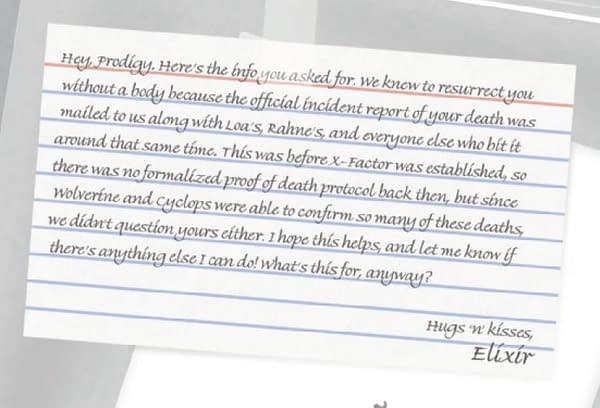 Hey, Prodigy. Here's the info you asked for. We knew to resurrect you
without a body because the official incident report of your death was
mailed to us along with Loa's, Rahne's, and everyone else who bit it
around that same time. This was before X-Factor was established, so
there was no formalized proof of death protocol back then, but since
Wolverine and Cyclops were able to confirm so many of these deaths,
we didn't question yours either. I hope this helps, and let me know if
there's anything else I can do! What's this for, anyway?
Hugs 'n' kisses,
Elixir